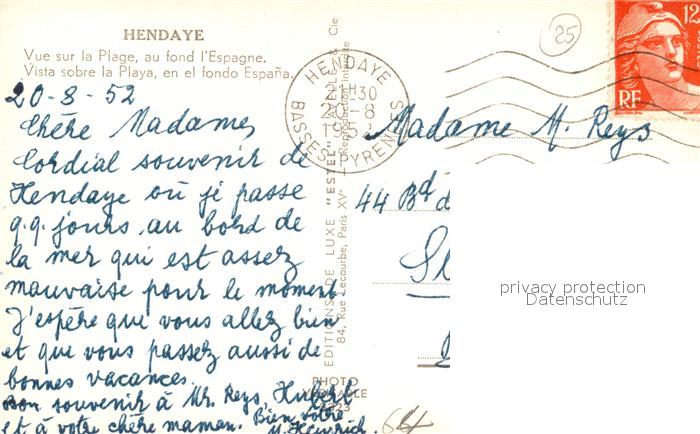 HENDAYE
Vue sur la Plage, au fond l'Espagne.
Vista sobre la Playa, en el fondo España.
20-8-52
Chère Madame,
Cordial souvenir de
Hendaye où je passe
q.q. jours au bord de
la mer qui est assez
mauvaise pour le moment.
J'espère que vous allez bien
et que vous passez aussi de
bonnes vacances.
Bon souvenir à Mr. Reys, Hubert
et à votre chère maman. Bien vôtre
M. Heinrich.
EDITIONS DE LUXE "ESTEL"
84, Rue Lecourbe, Paris XV
Reproduction Interdite
& Cie
PHOTO
HENDAYE
21H30
20-8
195
BASSES-PYRENEES
25
12
RF
Madame M. Reys
44 Bd d
privacy protection
Datenschutz
64